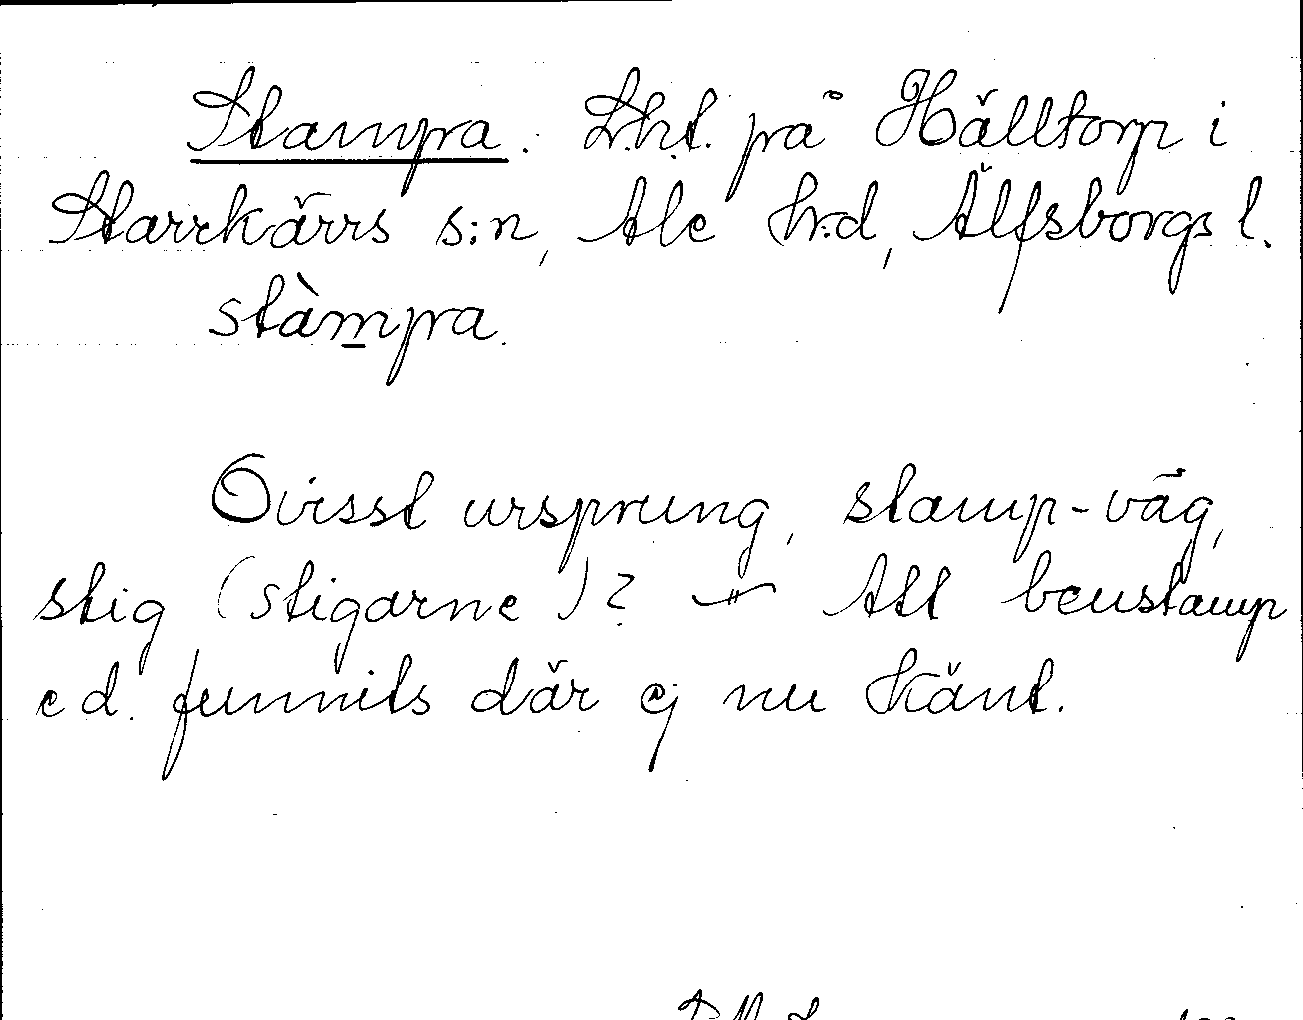 Stampra. L.h.t. på Hälltorp i
Starrkärrs s:n, Ale h:d, Älfsborgs l.
stàmpra.
Ovisst ursprung, stamp-väg,
stig (stigarne)? — Att benstamp
e d. funnits där ej nu känt.